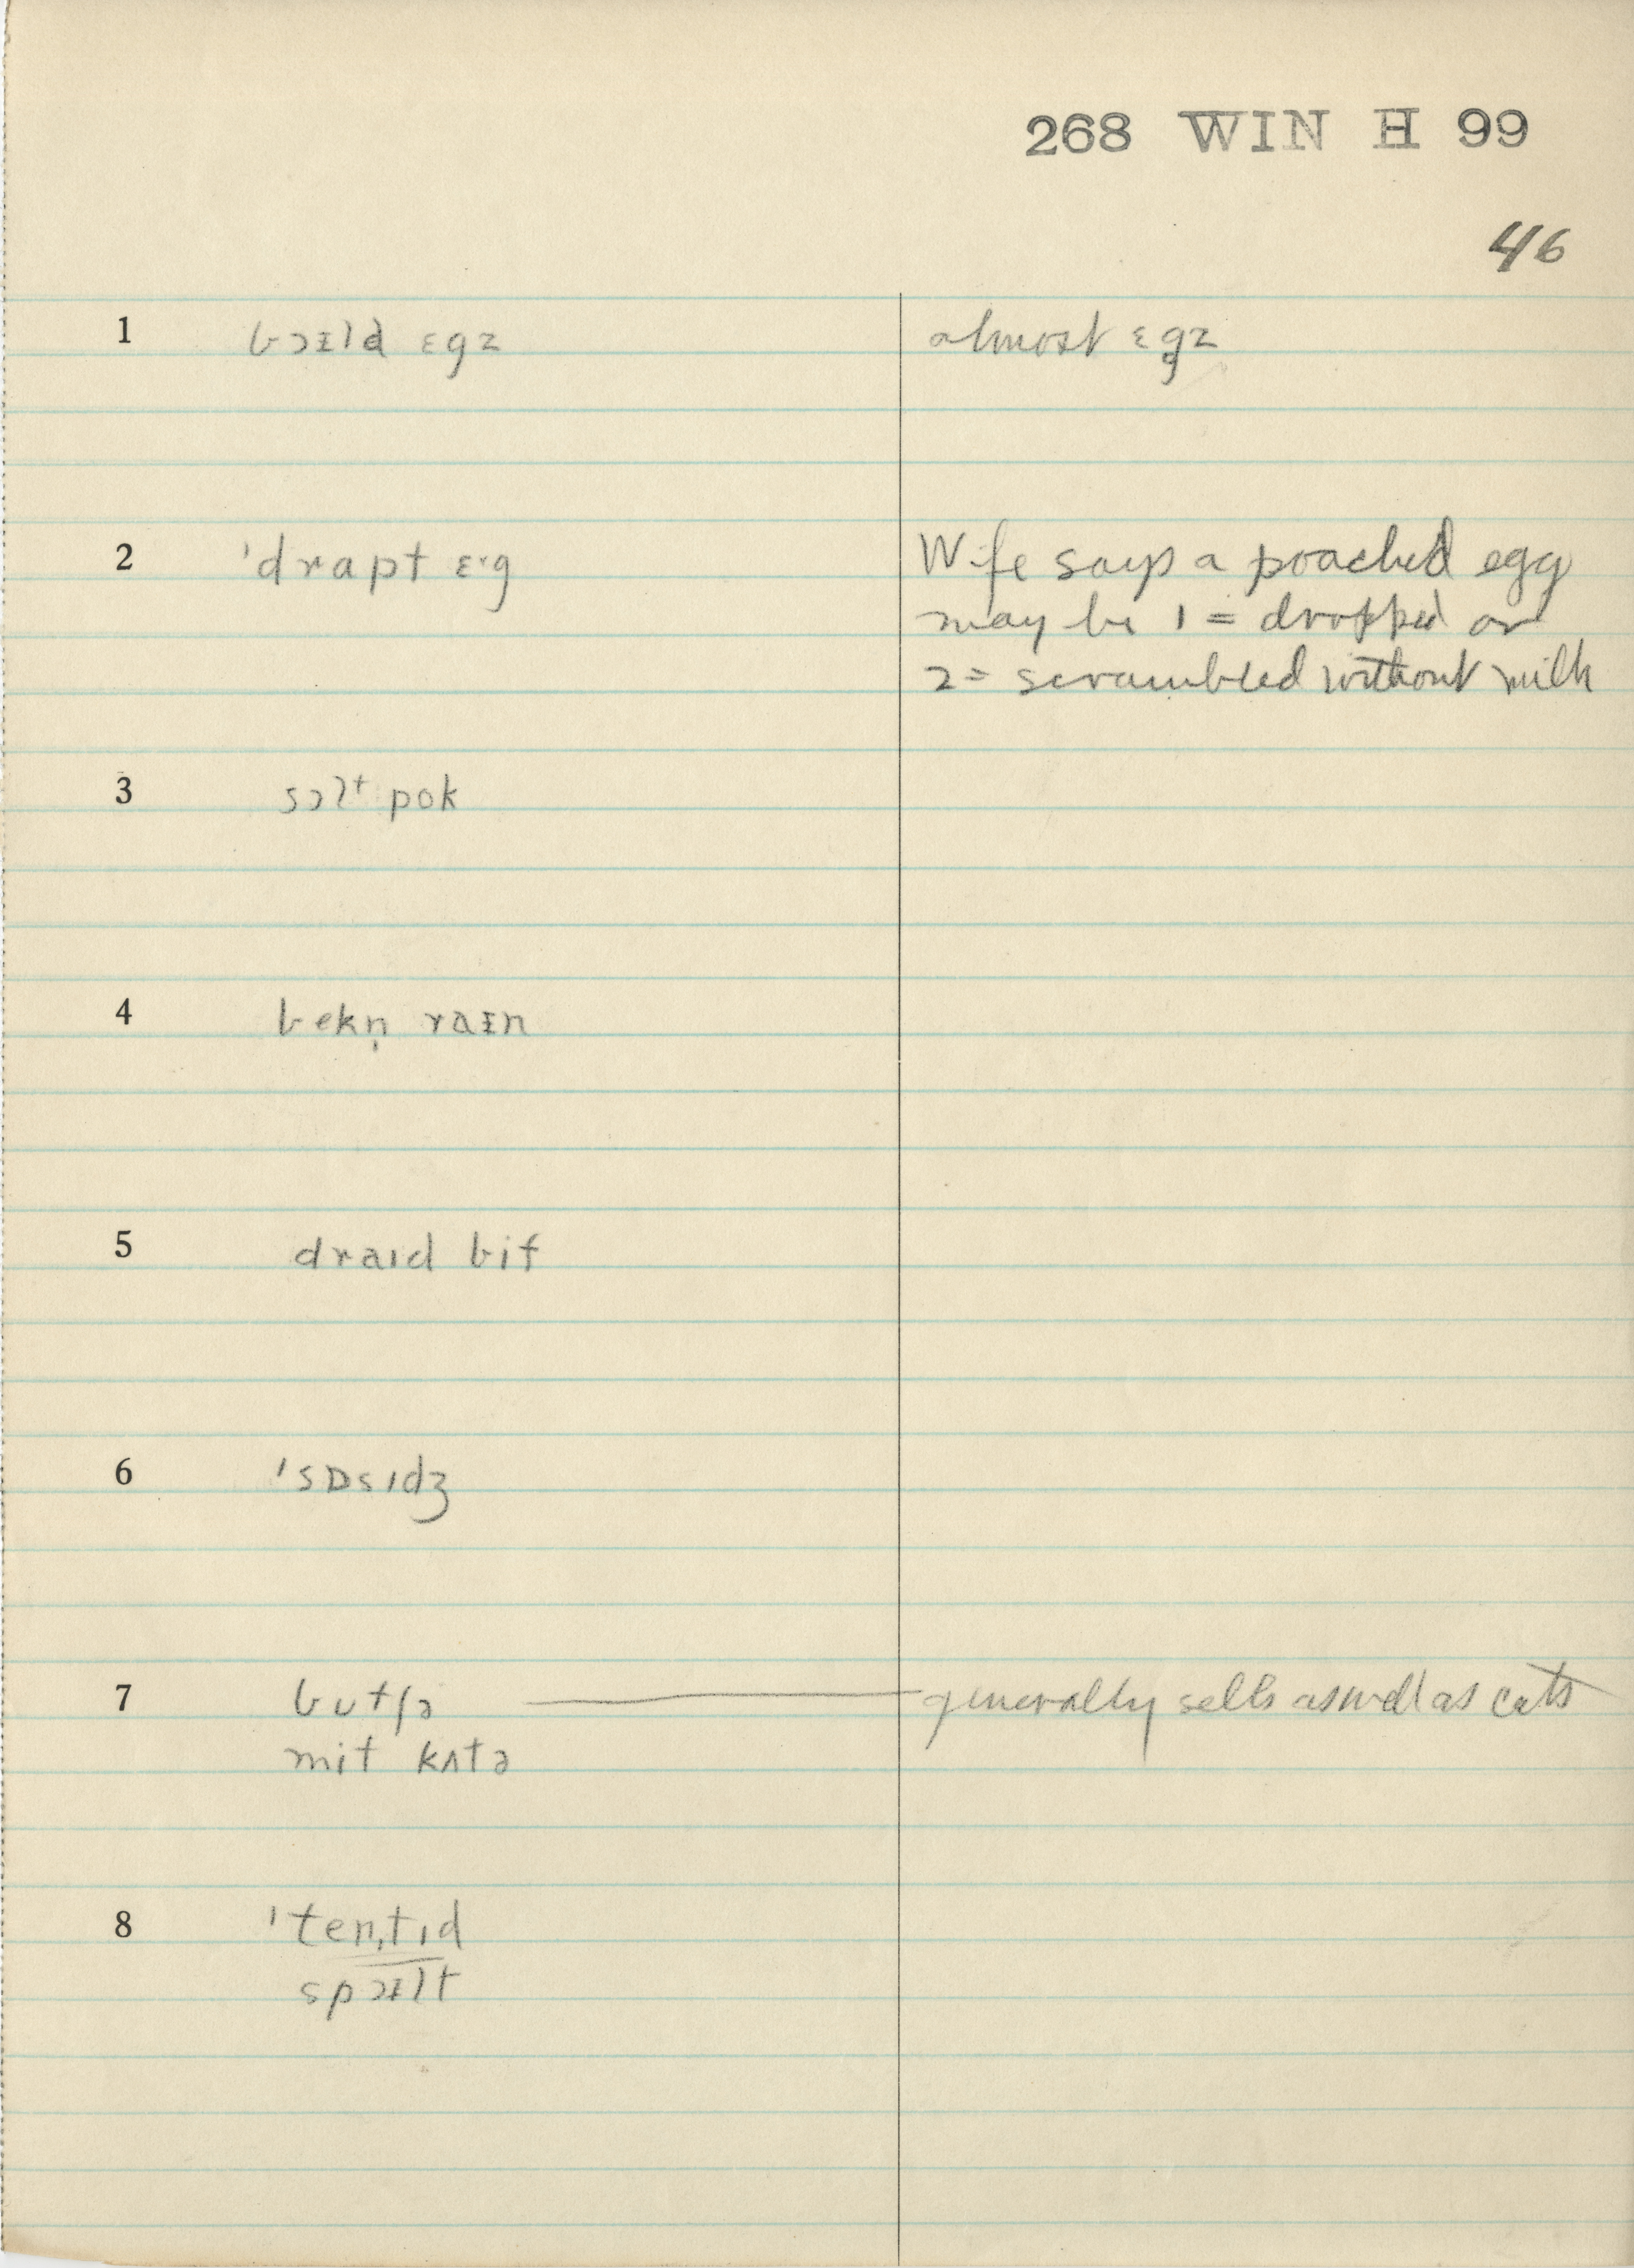 268 WIN H 99
46
1 bɔɪld ɛgz almost ɛgz
2 ˈdrapt ɛ·g Wife says a poached egg
may be 1 = dropped or
2 = scrambled without milk
3 sɔlt pok
4 bekn̩ raɪn
5 draɪd bif
6 ˈsɒsɪdʒ
7 bʊtʃə generally sells as well as cuts
mit kʌtə
8 ˈtenˌtɪd
spɔɪlt